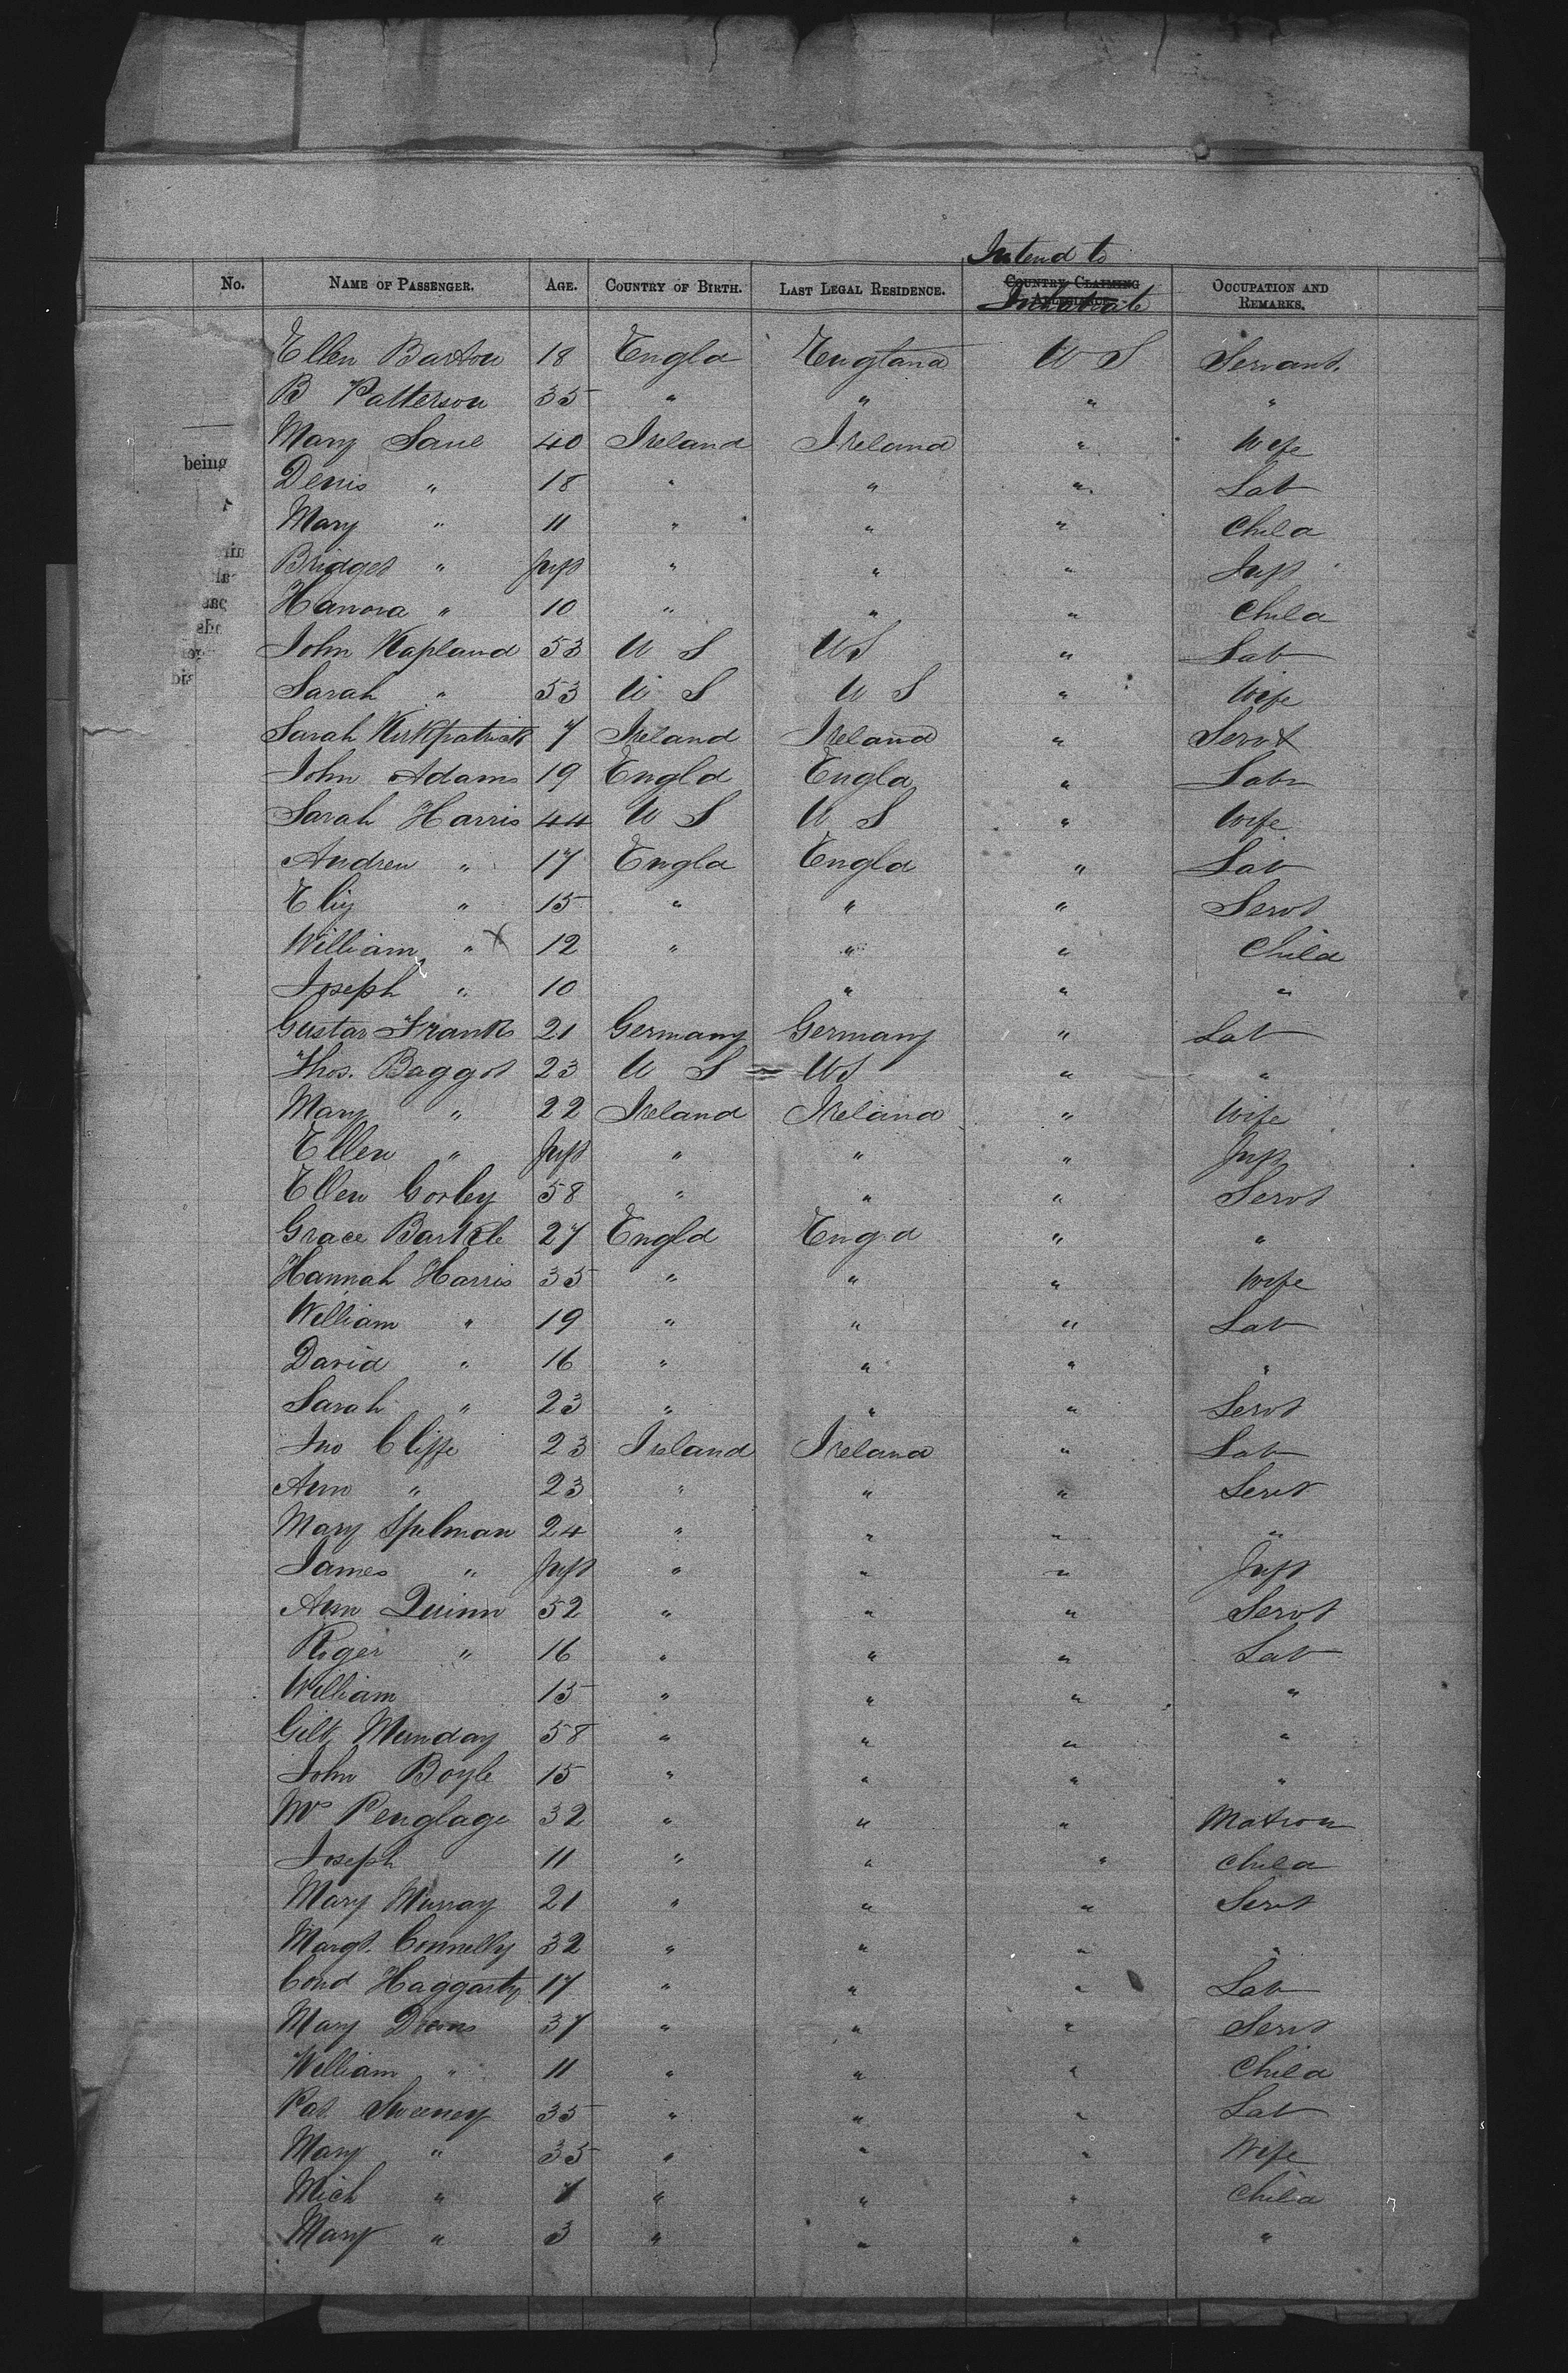 Intend to
No. NAME OF PASSENGER. AGE. COUNTRY OF BIRTH. LAST LEGAL RESIDENCE. COUNTRY CLAIMING ALLEGIANCE. Inhabitate OCCUPATION AND REMARKS.
Ellen Barton 18 Engld England U S Servant.
B Patterson 35 " " " "
Mary Saul 40 Ireland Ireland " Wife
being
Denis " 18 " " " Lab
Mary " 11 " " " Child
Bridget " Inft " " " Inft
Hanora " 10 " " " Child
John Kapland 53 U S US " Lab
Sarah " 53 U S U S " Wife
Sarah Kirkpatrick 7 Ireland Ireland " Servt
John Adams 19 Engld Engld " Labr
Sarah Harris 44 U S U S " Wife
Andrew " 17 Engld Engld " Lab
Eliz " 15 " " " Servt
William " X 12 " " " Child
Joseph " 10 " " "
Gustav Franks 21 Germany Germany " Lab
Thos. Baggot 23 U S = US " "
Mary " 22 Ireland Ireland " Wife
Ellen " Inft " " " Inft
Ellen Corley 58 " " " Servt
Grace Bartle 27 Engld Engd " "
Hannah Harris 35 " " " Wife
William " 19 " " " Lab
David " 16 " " " "
Sarah " 23 " " " Servt
Jno Cliffe 23 Ireland Ireland " Lab
Ann " 23 " " " Servt
Mary Spelman 24 " " " "
James " Inft " " " Inft
Ann Quinn 52 " " " Servt
Roger " 16 " " " Lab
William 15 " " " "
Gilt Munday 58 " " " "
John Boyle 15 " " " "
Mrs Penglage 32 " " " Matron
Joseph 11 " " " Child
Mary Murray 21 " " " Servt
Margt. Connelly 32 " " " "
Cond Haggarty 17 " " " Lab
Mary 37 " " " Servt
William " 11 " " " Child
Pat Sweeney 35 " " " Lab
Mary " 35 " " " Wife
Mich " 7 " " " Child
Mary " 3 " " " "